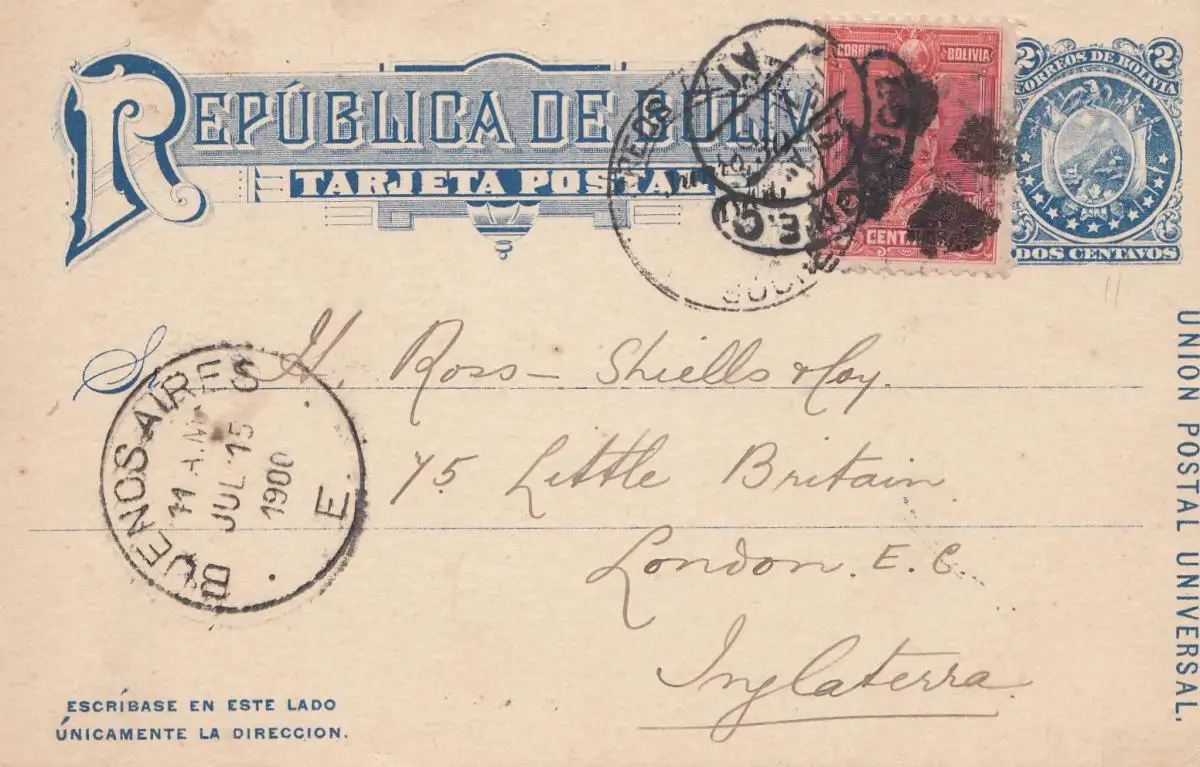 REPÚBLICA DE BOLIV
TARJETA POSTAL
CORREOS BOLIVIA
CENTAVOS
2 2
CORREOS DE BOLIVIA
DOS CENTAVOS
Sr. H. Ross-Shiells & Coy.
75 Little Britain
London. E. C.
Inglaterra
BUENOS AIRES
11 AM
JUL 15
1900
E.
UNION POSTAL UNIVERSAL.
ESCRÍBASE EN ESTE LADO
ÚNICAMENTE LA DIRECCION.